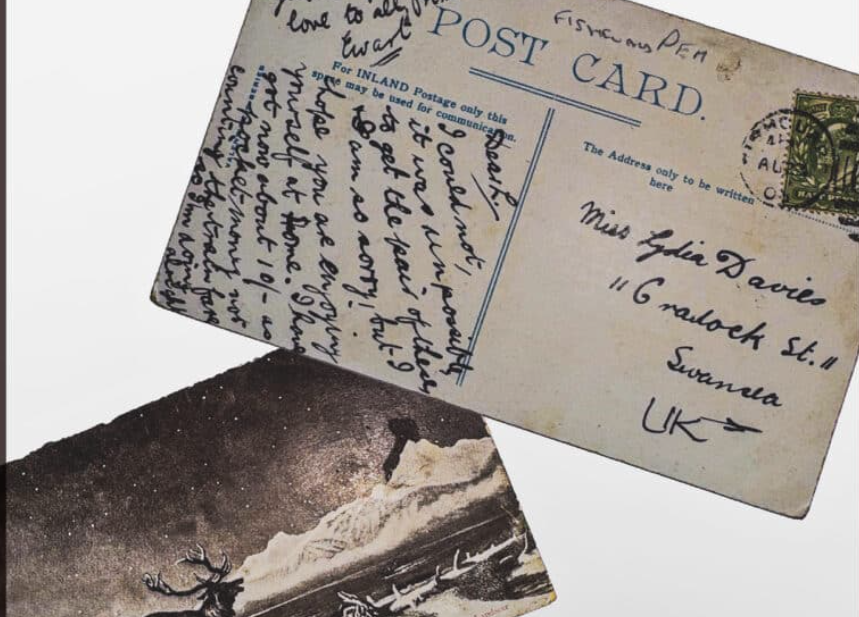 love to all, from
Ewart
POST CARD.
FISHGUARD PEM
For INLAND Postage only this
space may be used for communication.
The Address only to be written
here
Dear L,
I could not,
it was impossible
to get the pair of these
I am so sorry! but I
hope you are enjoying
yourself at Home. I have
got now about 10/- as
pocket-money not
counting the train fare
so I'm doing
AU
HALF
Miss Lydia Davies
"Cradock St."
Swansea
UK